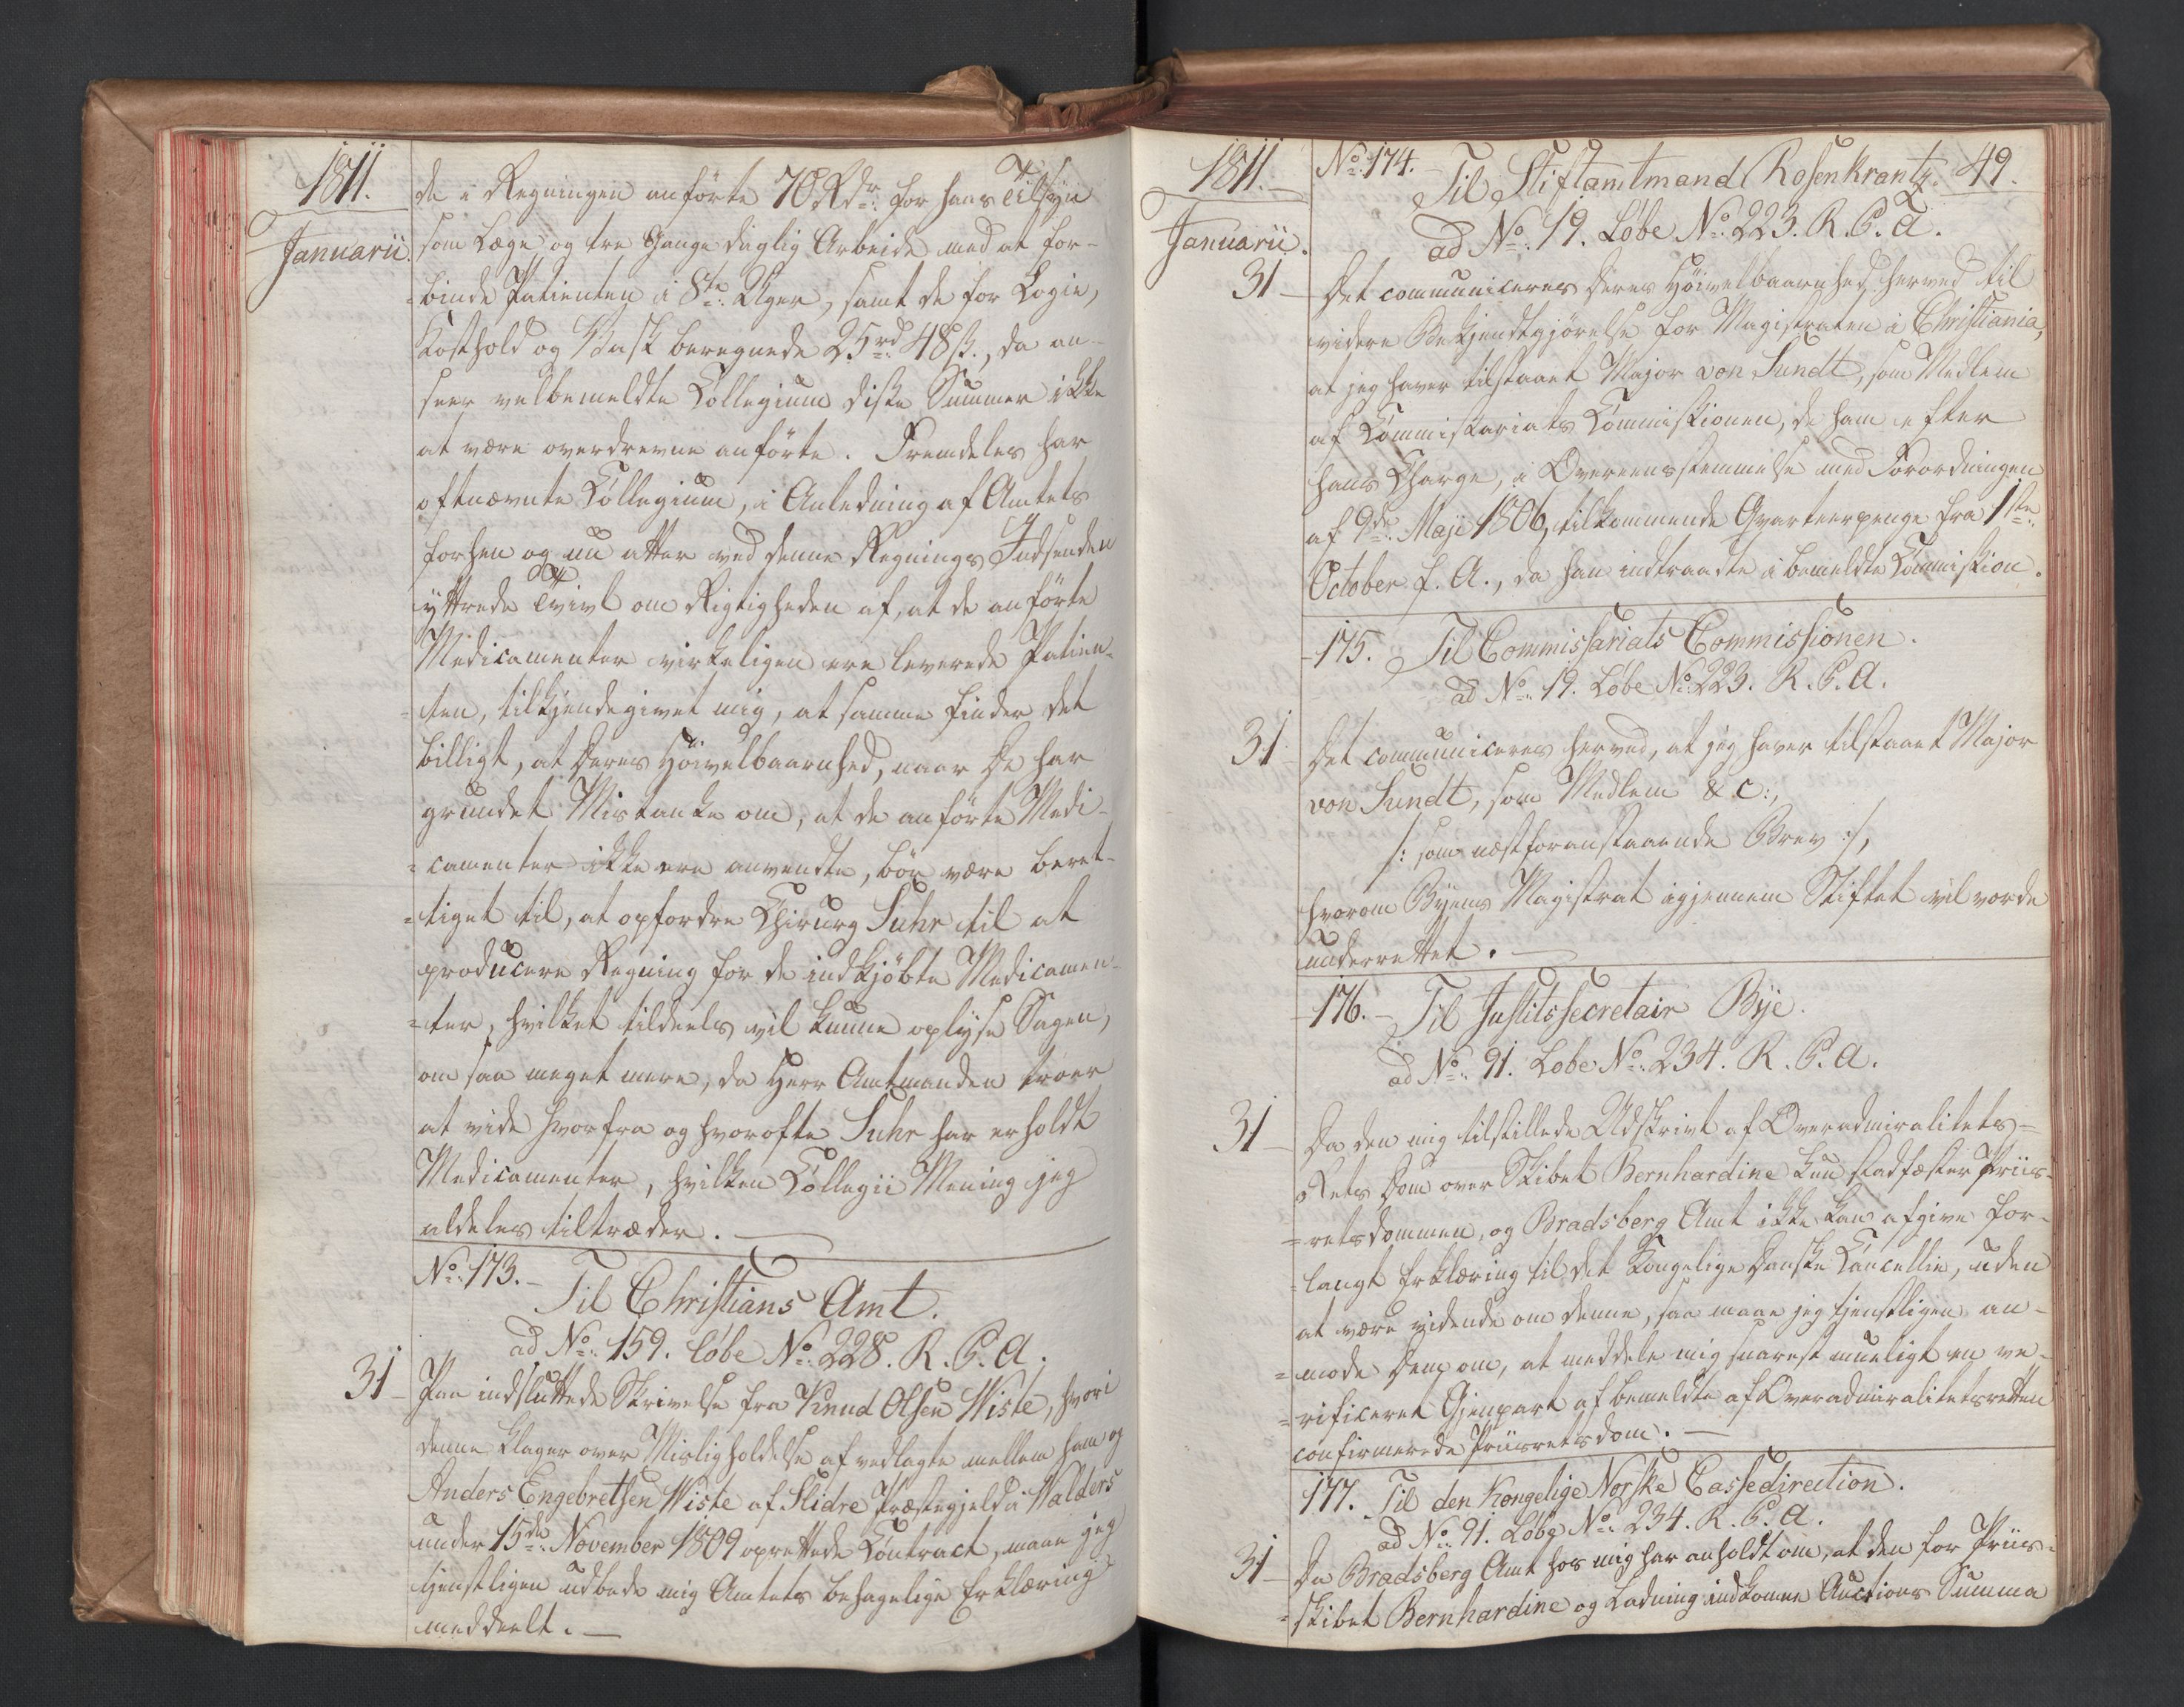 1811.
Januarii.
de i Regningen anførte 70 Rdr. for hans Tilsyn
som Læge og tre Gange daglig Arbeide med at for-
=binde Patienten i 8te Uger, samt de for Logie,
Kosthold og Vask beregnede 25rd 48ß., da an-
seer velbemeldte Collegium disse Summer ikke
at være overdrevne anførte. Fremdeles har
oftnævnte Collegium, i Anledning af Amtets
forhen og nu atter ved denne Regnings Indsenden
yttrede Tvivl om Rigtigheden af, at de anførte
Medicamenter virkeligen ere leverede Patien-
=ten, tilkjendegivet mig, at samme finder det
billigt, at Deres Høivelbaarnhed, naar De har
grundet Mistanke om, at de anførte Medi-
=camenter ikke ere anvendte, bør være beret-
=tiget til, at opfordre Chirurg Suhr til at
producere Regning for de indkjøbte Medicamen-
=ter, hvilket tildeels vil kunne oplyse Sagen,
om saa meget mere, da Herr Amtmanden troer
at vide hvorfra og hvorofte Suhr har erholdt
Medicamenter, hvilken Collegii Mening jeg
aldeles tiltræder.
No. 173. Til Christians Amt.
ad No. 159. Løbe No. 228. R. P. A.
31 Paa indsluttede Skrivelse fra Knud Olsen Wiste, hvori
denne klager over Misligholdelse af vedlagte mellem ham og
Anders Engebretsen Wiste af Slidre Præstegjeld i Walders
under 15de November 1809 oprettede Contract, maae jeg
tjenstligen udbede mig Amtets behagelige Erklæring
meddeelt.
1811.
Januarii.
No. 174. Til Stiftamtmand Rosenkrantz. 49.
ad No. 19. Løbe No. 223. R. P. A.
31 Det communiceres Deres Høivelbaarnhed herved til
videre Bekjendtgjørelse for Magistraten i Christiania,
at jeg haver tilstaaet Major von Sundt, som Medlem
af Commissariats Commissionen, de ham efter
hans Charge, i Overeensstemmelse med Forordningen
af 9de Maji 1806, tilkommende Qvarteerpenge fra 1ste
October f. A., da han indtraadte i bemeldte Commission.
175. Til Commissariats Commissionen.
ad No. 19. Løbe No. 223. R. P. A.
31 Det communiceres herved, at jeg haver tilstaaet Major
von Sundt, som Medlem &c:,
/: som næstforanstaaende Brev :/,
hvorom Byens Magistrat igjennem Stiftet vil vorde
underrettet.
176. Til Justitssecretair Bye.
ad No. 91. Løbe No. 234. R. P. A.
31 Da den mig tilstillede Udskrivt af Overadmiralitets-
Rets Dom over Skibet Bernhardine kun stadfæster Priis-
=retsdommen, og Bradsberg Amt ikke kan afgive for-
=langt Erklæring til det Kongelige Danske Cancellie, uden
at være vidende om denne, saa maae jeg tjenstligen an-
=mode Dem om, at meddele mig snarest mueligt en ve-
=rificeret Gjenpart af bemeldte af Overadmiralitetsretten
confirmerede Priisretsdom.
177. Til den Kongelige Norske Cassedirection.
ad No. 91. Løbe No. 234. R. P. A.
31 Da Bradsberg Amt hos mig har anholdt om, at den for Priis-
=skibet Bernhardine og Ladning indkomne Auctions Summa